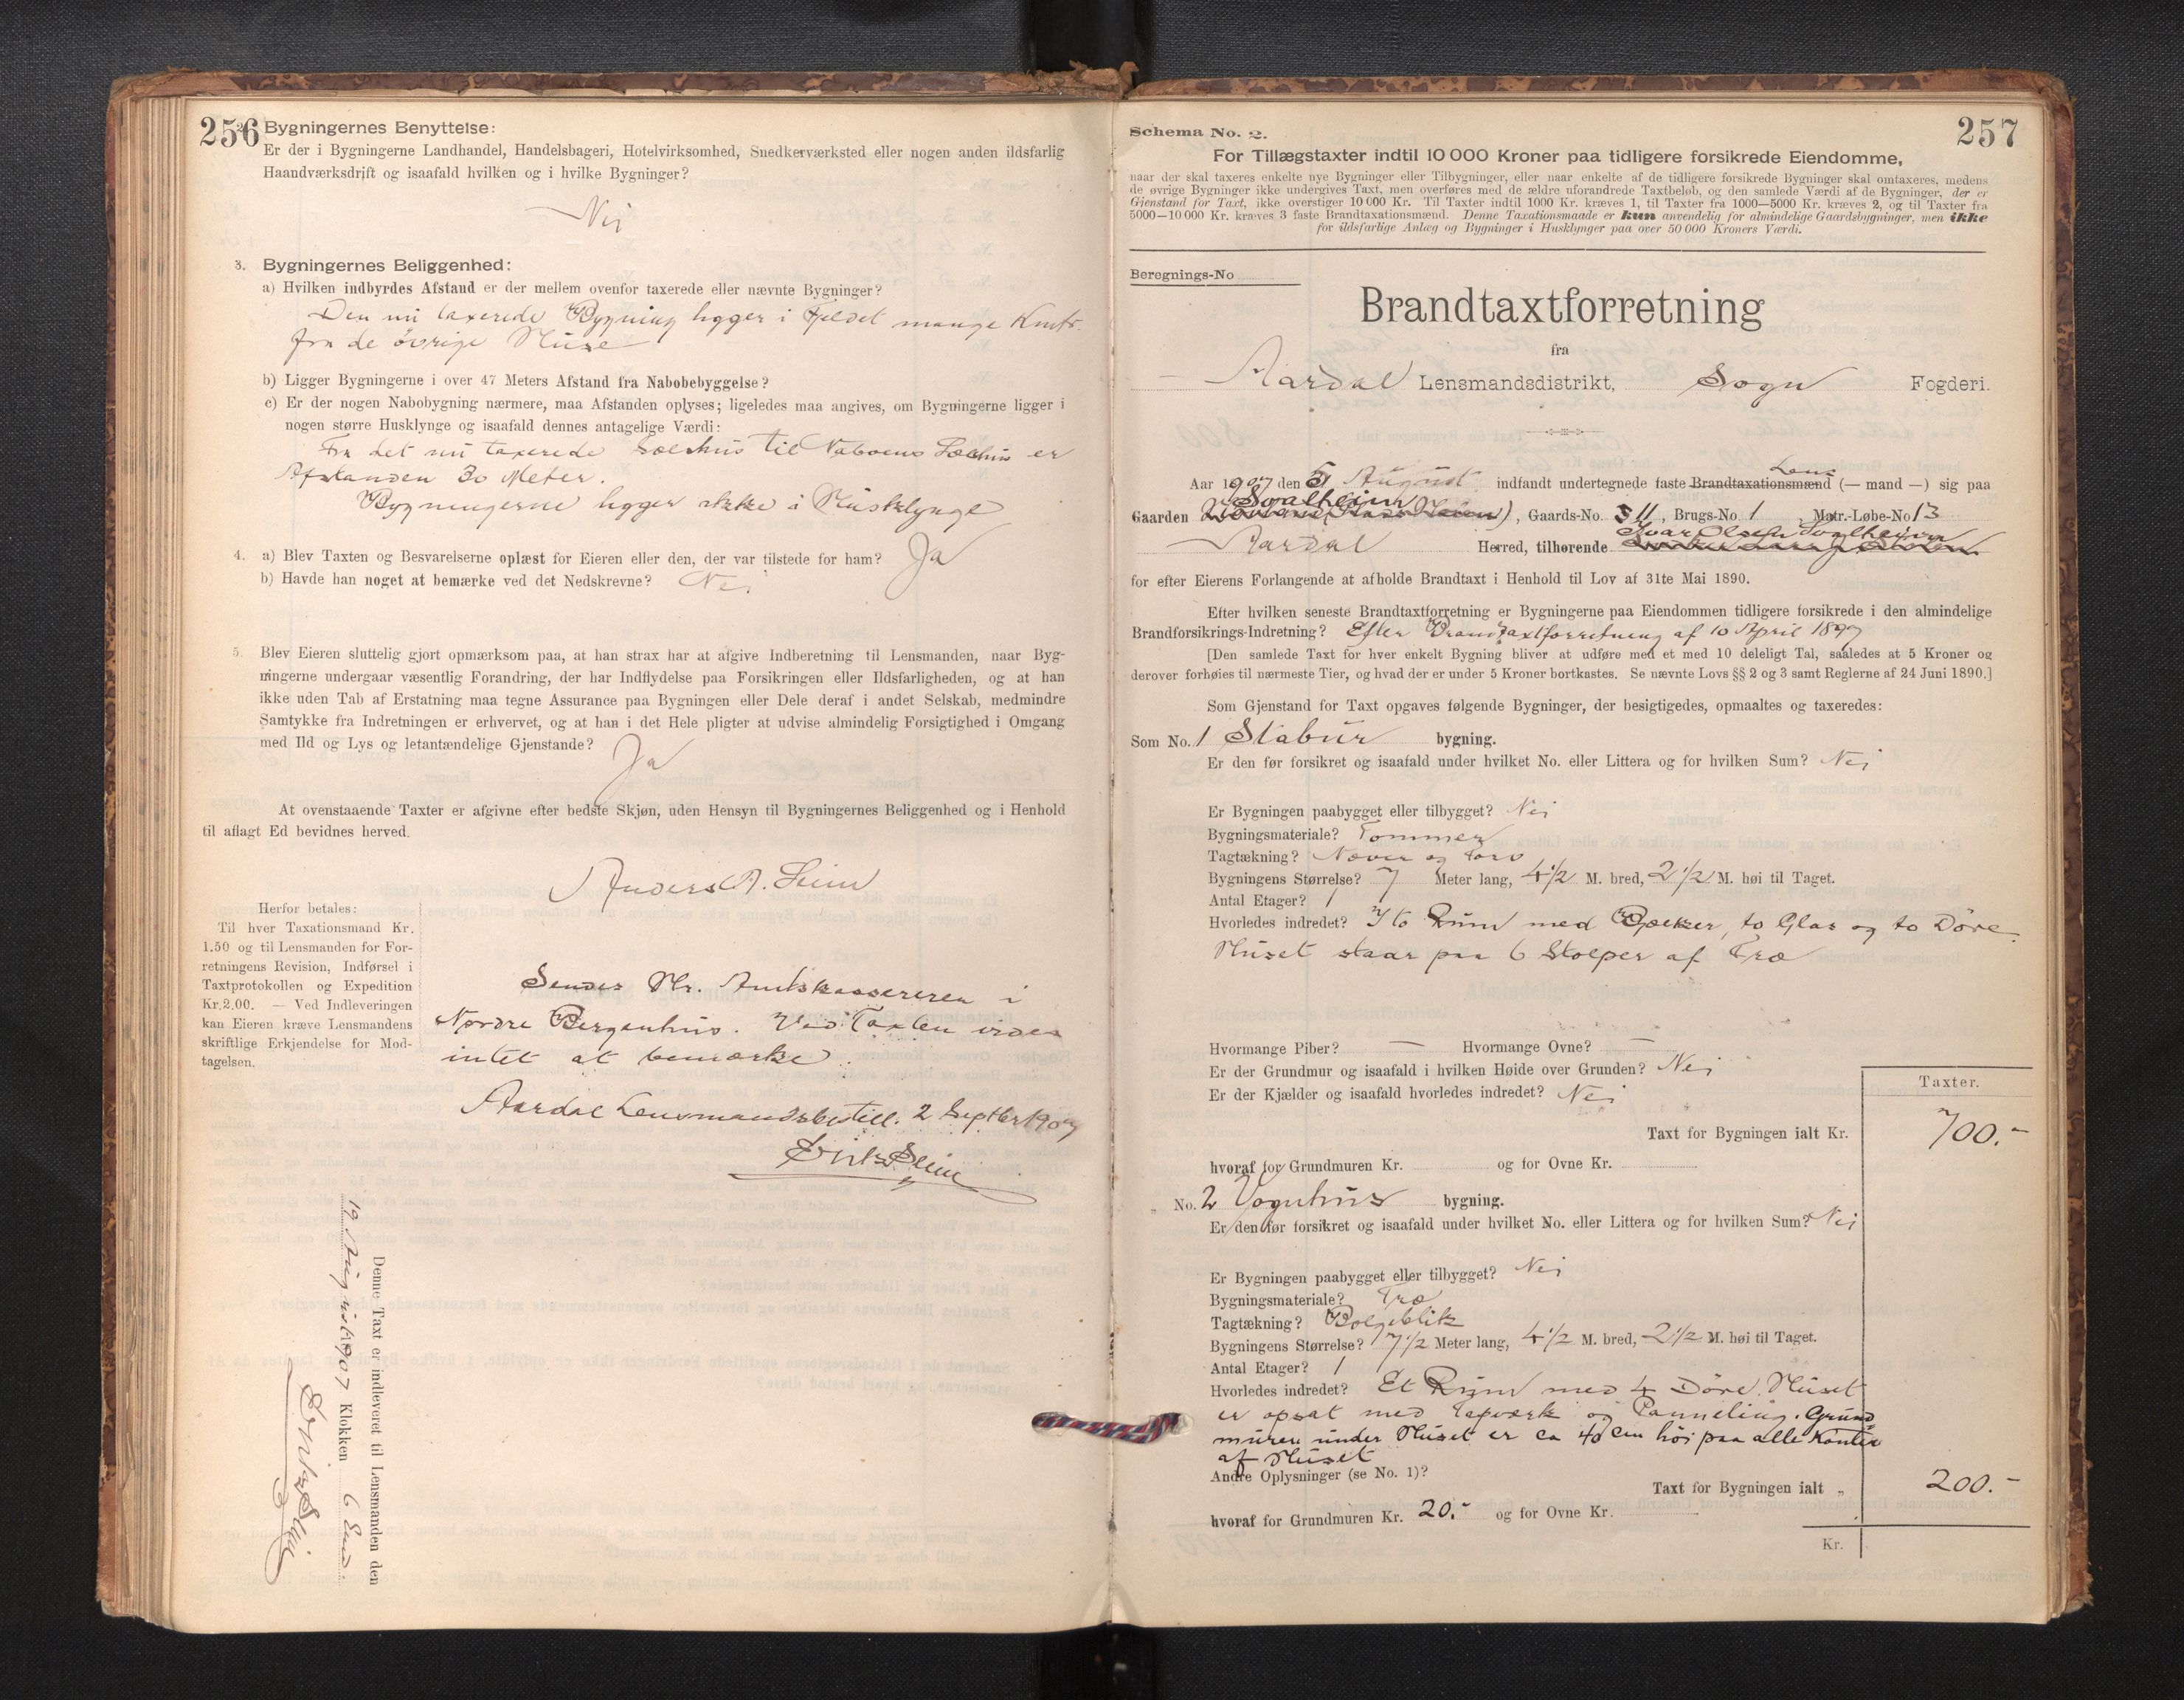 256
Bygningernes Benyttelse:
Er der i Bygningerne Landhandel, Handelsbageri, Hotelvirksomhed, Snedkerværksted eller nogen anden ildsfarlig
Haandværksdrift og isaafald hvilken og i hvilke Bygninger?
Nei
3. Bygningernes Beliggenhed:
a) Hvilken indbyrdes Afstand er der mellem ovenfor taxerede eller nævnte Bygninger?
Den nu taxerede Bygning ligger i Fjeldet mange Kmtr.
fra de øvrige Huse
b) Ligger Bygningerne i over 47 Meters Afstand fra Nabobebyggelse?
c) Er der nogen Nabobygning nærmere, maa Afstanden oplyses; ligeledes maa angives, om Bygningerne ligger i
nogen større Husklynge og isaafald dennes antagelige Værdi:
Fra det nu taxerede Sælshus til Naboens Sælhus er
Afstanden 30 Meter.
Bygningerne ligger ikke i Husklynge
4. a) Blev Taxten og Besvarelserne oplæst for Eieren eller den, der var tilstede for ham? Ja
b) Havde han noget at bemærke ved det Nedskrevne? Nei
5. Blev Eieren sluttelig gjort opmærksom paa, at han strax har at afgive Indberetning til Lensmanden, naar Byg-
ningerne undergaar væsentlig Forandring, der har Indflydelse paa Forsikringen eller Ildsfarligheden, og at han
ikke uden Tab af Erstatning maa tegne Assurance paa Bygningen eller Dele deraf i andet Selskab, medmindre
Samtykke fra Indretningen er erhvervet, og at han i det Hele pligter at udvise almindelig Forsigtighed i Omgang
med Ild og Lys og letantændelige Gjenstande?
Ja
At ovenstaaende Taxter er afgivne efter bedste Skjøn, uden Hensyn til Bygningernes Beliggenhed og i Henhold
til aflagt Ed bevidnes herved.
Anders A. Seim
Herfor betales:
Til hver Taxationsmand Kr.
1.50 og til Lensmanden for For-
retningens Revision, Indførsel i
Taxtprotokollen og Expedition
Kr. 2.00. — Ved Indleveringen
kan Eieren kræve Lensmandens
skriftlige Erkjendelse for Mod-
tagelsen.
Sendes Hr. Amtskassereren i
Nordre Bergenhus. Ved Taxten vides
intet at bemærke.
Aardal Lensmandsbestill. 2 Septbr 1907
Denne Taxt er indleveret til Lensmanden den
19 August 1907 Klokken 6 Em.
257
Schema No. 2.
For Tillægstaxter indtil 10 000 Kroner paa tidligere forsikrede Eiendomme,
naar der skal taxeres enkelte nye Bygninger eller Tilbygninger, eller naar enkelte af de tidligere forsikrede Bygninger skal omtaxeres, medens
de øvrige Bygninger ikke undergives Taxt, men overføres med de ældre uforandrede Taxtbeløb, og den samlede Værdi af de Bygninger, der er
Gjenstand for Taxt, ikke overstiger 10 000 Kr. Til Taxter indtil 1000 Kr. kræves 1, til Taxter fra 1000—5000 Kr. kræves 2, og til Taxter fra
5000—10 000 Kr. kræves 3 faste Brandtaxationsmænd. Denne Taxationsmaade er kun anvendelig for almindelige Gaardsbygninger, men ikke
for ildsfarlige Anlæg og Bygninger i Husklynger paa over 50 000 Kroners Værdi.
Beregnings-No
Brandtaxtforretning
fra
Aardal Lensmandsdistrikt, Sogn Fogderi.
Lens
Aar 1907 den 5 August indfandt undertegnede faste Brandtaxationsmænd (— mand —) sig paa
Svalheim
Gaarden , Gaards-No. 11, Brugs-No. 1, Matr.-Løbe-No 13
Ivar Olsen Svalheim
Aardal Herred, tilhørende
for efter Eierens Forlangende at afholde Brandtaxt i Henhold til Lov af 31te Mai 1890.
Efter hvilken seneste Brandtaxtforretning er Bygningerne paa Eiendommen tidligere forsikrede i den almindelige
Brandforsikrings-Indretning? Efter Brandtaxtforretning af 10 April 1897
[Den samlede Taxt for hver enkelt Bygning bliver at udføre med et med 10 deleligt Tal, saaledes at 5 Kroner og
derover forhøies til nærmeste Tier, og hvad der er under 5 Kroner bortkastes. Se nævnte Lovs §§ 2 og 3 samt Reglerne af 24 Juni 1890.]
Som Gjenstand for Taxt opgaves følgende Bygninger, der besigtigedes, opmaaltes og taxeredes:
Som No. 1 Stabur bygning.
Er den før forsikret og isaafald under hvilket No. eller Littera og for hvilken Sum? Nei
Er Bygningen paabygget eller tilbygget? Nei
Bygningsmateriale? Tømmer
Tagtækning? Næver og Torv
Bygningens Størrelse? 7 Meter lang, 4 1/2 M. bred, 2 1/2 M. høi til Taget.
Antal Etager? 1
Hvorledes indredet? I to Rum med Bjælker, to Glas og to Døre.
Huset staar paa 6 Stolper af Træ
Hvormange Piber? — Hvormange Ovne? —
Er der Grundmur og isaafald i hvilken Høide over Grunden? Nei
Er der Kjælder og isaafald hvorledes indredet? Nei
Taxter.
Taxt for Bygningen ialt Kr. 700.-
hvoraf for Grundmuren Kr. og for Ovne Kr.
„ No. 2 Vognhus bygning.
Er den før forsikret og isaafald under hvilket No. eller Littera og for hvilken Sum? Nei
Er Bygningen paabygget eller tilbygget? Nei
Bygningsmateriale? Træ
Tagtækning? Bølgeblik
Bygningens Størrelse? 7 1/2 Meter lang, 4 1/2 M. bred, 2 1/2 M. høi til Taget.
Antal Etager? 1
Hvorledes indredet? Et Rum med 4 Døre. Huset
er opsat med Tapværk og Panneling. Grund
muren under Huset er ca 40 cm høi paa alle Kanter
af Huset
Andre Oplysninger (se No. 1)?
Taxt for Bygningen ialt „ 200.-
hvoraf for Grundmuren Kr. 20.- og for Ovne Kr.
Kr.